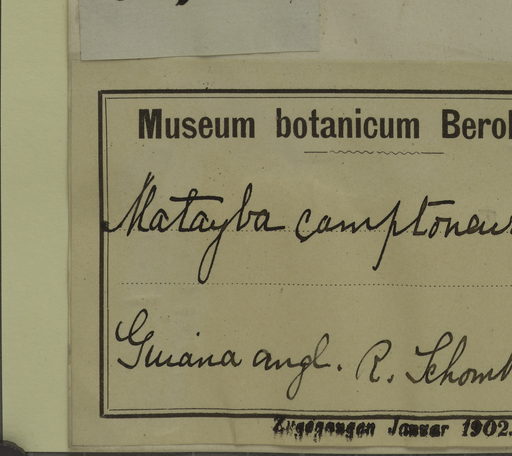 Museum botanicum Berol
Matayba camptoneur
Guiana angl. R. Schomb
Zugegangen Januar 1902.